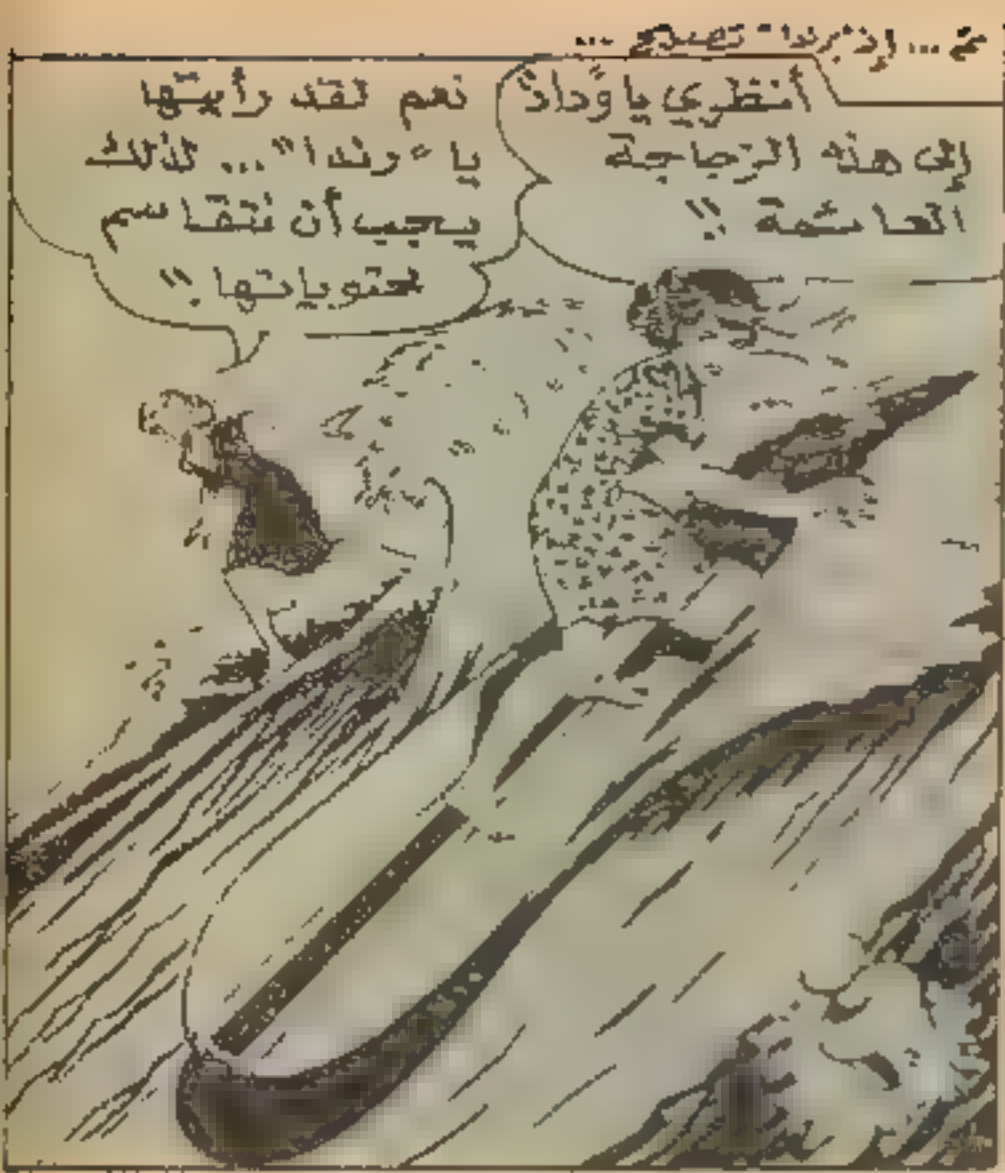 أنظري يا "وداد"
إلى هذه الزجاجة
العائمة !!
نعم لقد رأيتها
يا "رندا"... لذلك
يجب أن نتقاسم
محتوياتها !!